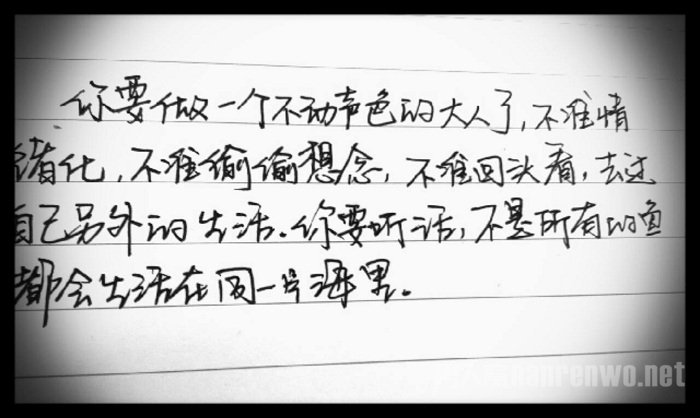 你要做一个不动声色的大人了,不准情
绪化,不准偷偷想念,不准回头看,去过
自己另外的生活.你要听话,不是所有的鱼
都会生活在同一片海里.
nanrenwo.net